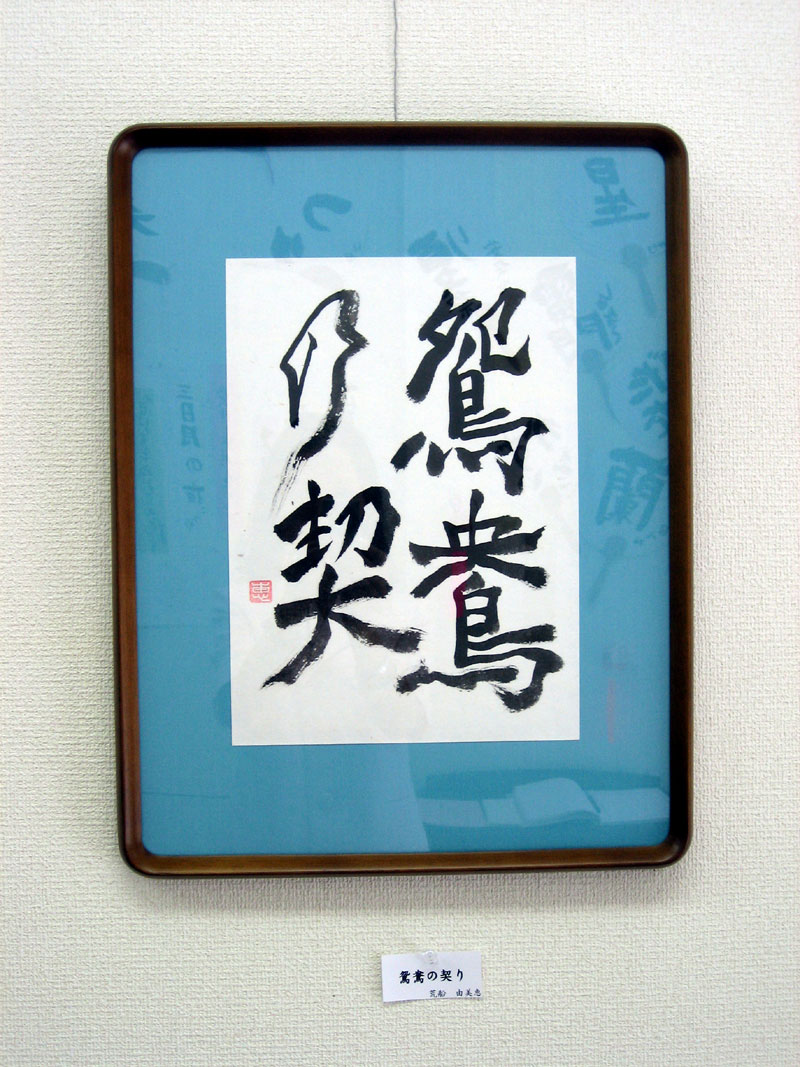 鴛鴦
の契
鴛鴦の契り
荒船 由美恵